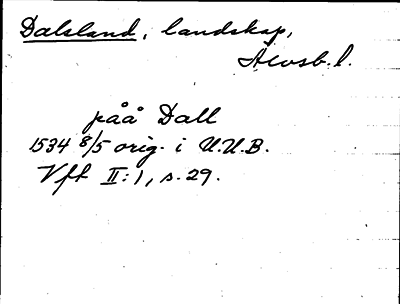 Dalsland, landskap,
Älvsb. l.
påå Dall
1534 8/5 orig. i U.U.B.
Vft II:1, s. 29.